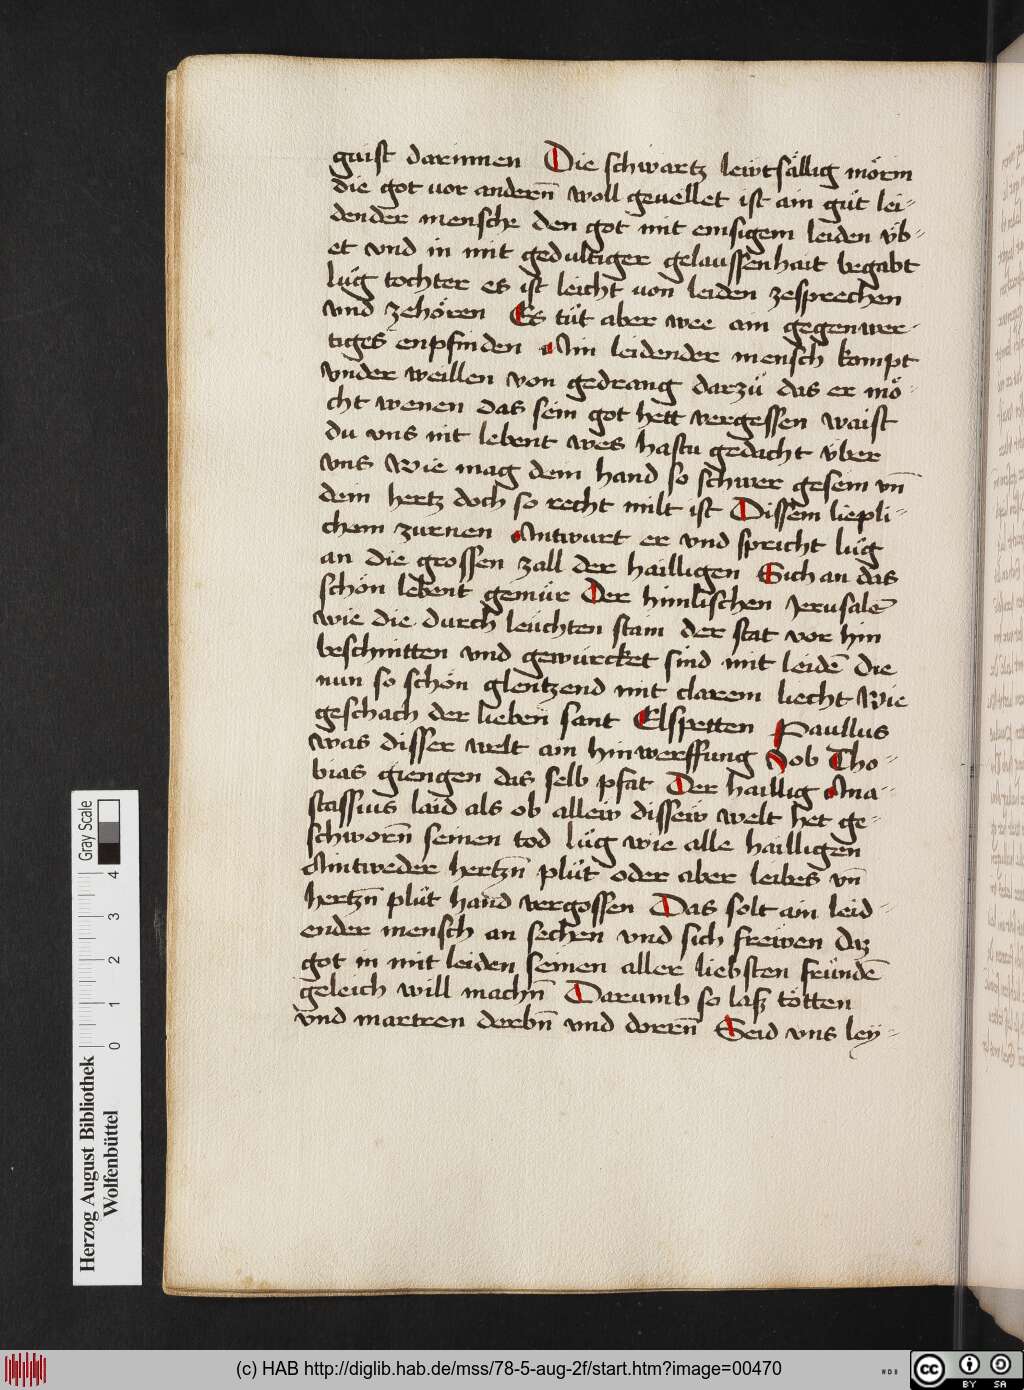 guist darinnen Die schwartz lewtsållig mörin
die got vor andern̄ woll geuellet ist ain gůt lei-
dender mensche den got mit emsigem leiden vb-
et vnd in mit gedultiger gelaussenhait begabt
lůg tochter es ist leicht von leiden zesprechen
vnd zehören Es tůt aber wee ain gegenwer-
tiges enpfinden Ain leidender mensch kompt
vnder weillen von gedrang darzů das er mö-
cht wenen das sein got hett vergessen waist
du vns nit lebent wes hastu gedacht v̈ber
vns Wie mag dem hand so schwer gesein vn̄
dein hertz doch so recht milt ist Dissem liepli-
chem zurnen Antwurt er vnd spricht lůg
an die grossen zall der hailligen Sich an das
schön lebent gemür Der himlischen Jerusalē
wie die durch leüchten stain der stat vor hin
beschnitten vnd gewurcket sind mit leidē die
nun so schön glentzend mit clarem liecht Wie
geschach der lieben sant Elspetten Paullus
was disser welt ain hinwerffung Job Tho-
bias giengen das selb pfat Der haillig Ana-
stassius laid als ob allew dissew welt het ge-
schworn̄ seinen tod lůg wie alle hailligen
Aintweder hertzn̄ plůt oder aber leibes vn̄
hertzn̄ plůt hand vergossen Das solt ain leid-
ender mensch an sechen vnd sich frewen daz
got in mit leiden seinen aller liebsten fründē
geleich will machn̄ Darumb so laß tötten
vnd martren derbn̄ vnd dorrn̄ Seid vns leÿ-
Gray Scale
4 3 2 1 0
Herzog August Bibliothek
Wolfenbüttel
(c) HAB http://diglib.hab.de/mss/78-5-aug-2f/start.htm?image=00470
WDB
cc BY SA